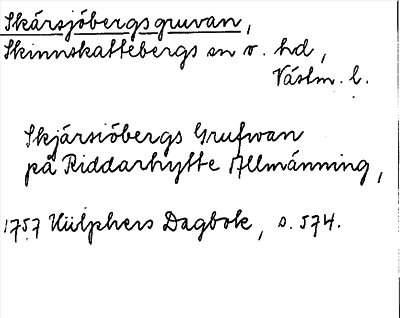 Skärsjöbergsgruvan,
Skinnskattebergs sn o. hd,
Västm. l.
Skjärsiöbergs Grufwan
på Riddarhytte Allmänning,
1757 Hülphers Dagbok, s. 574.